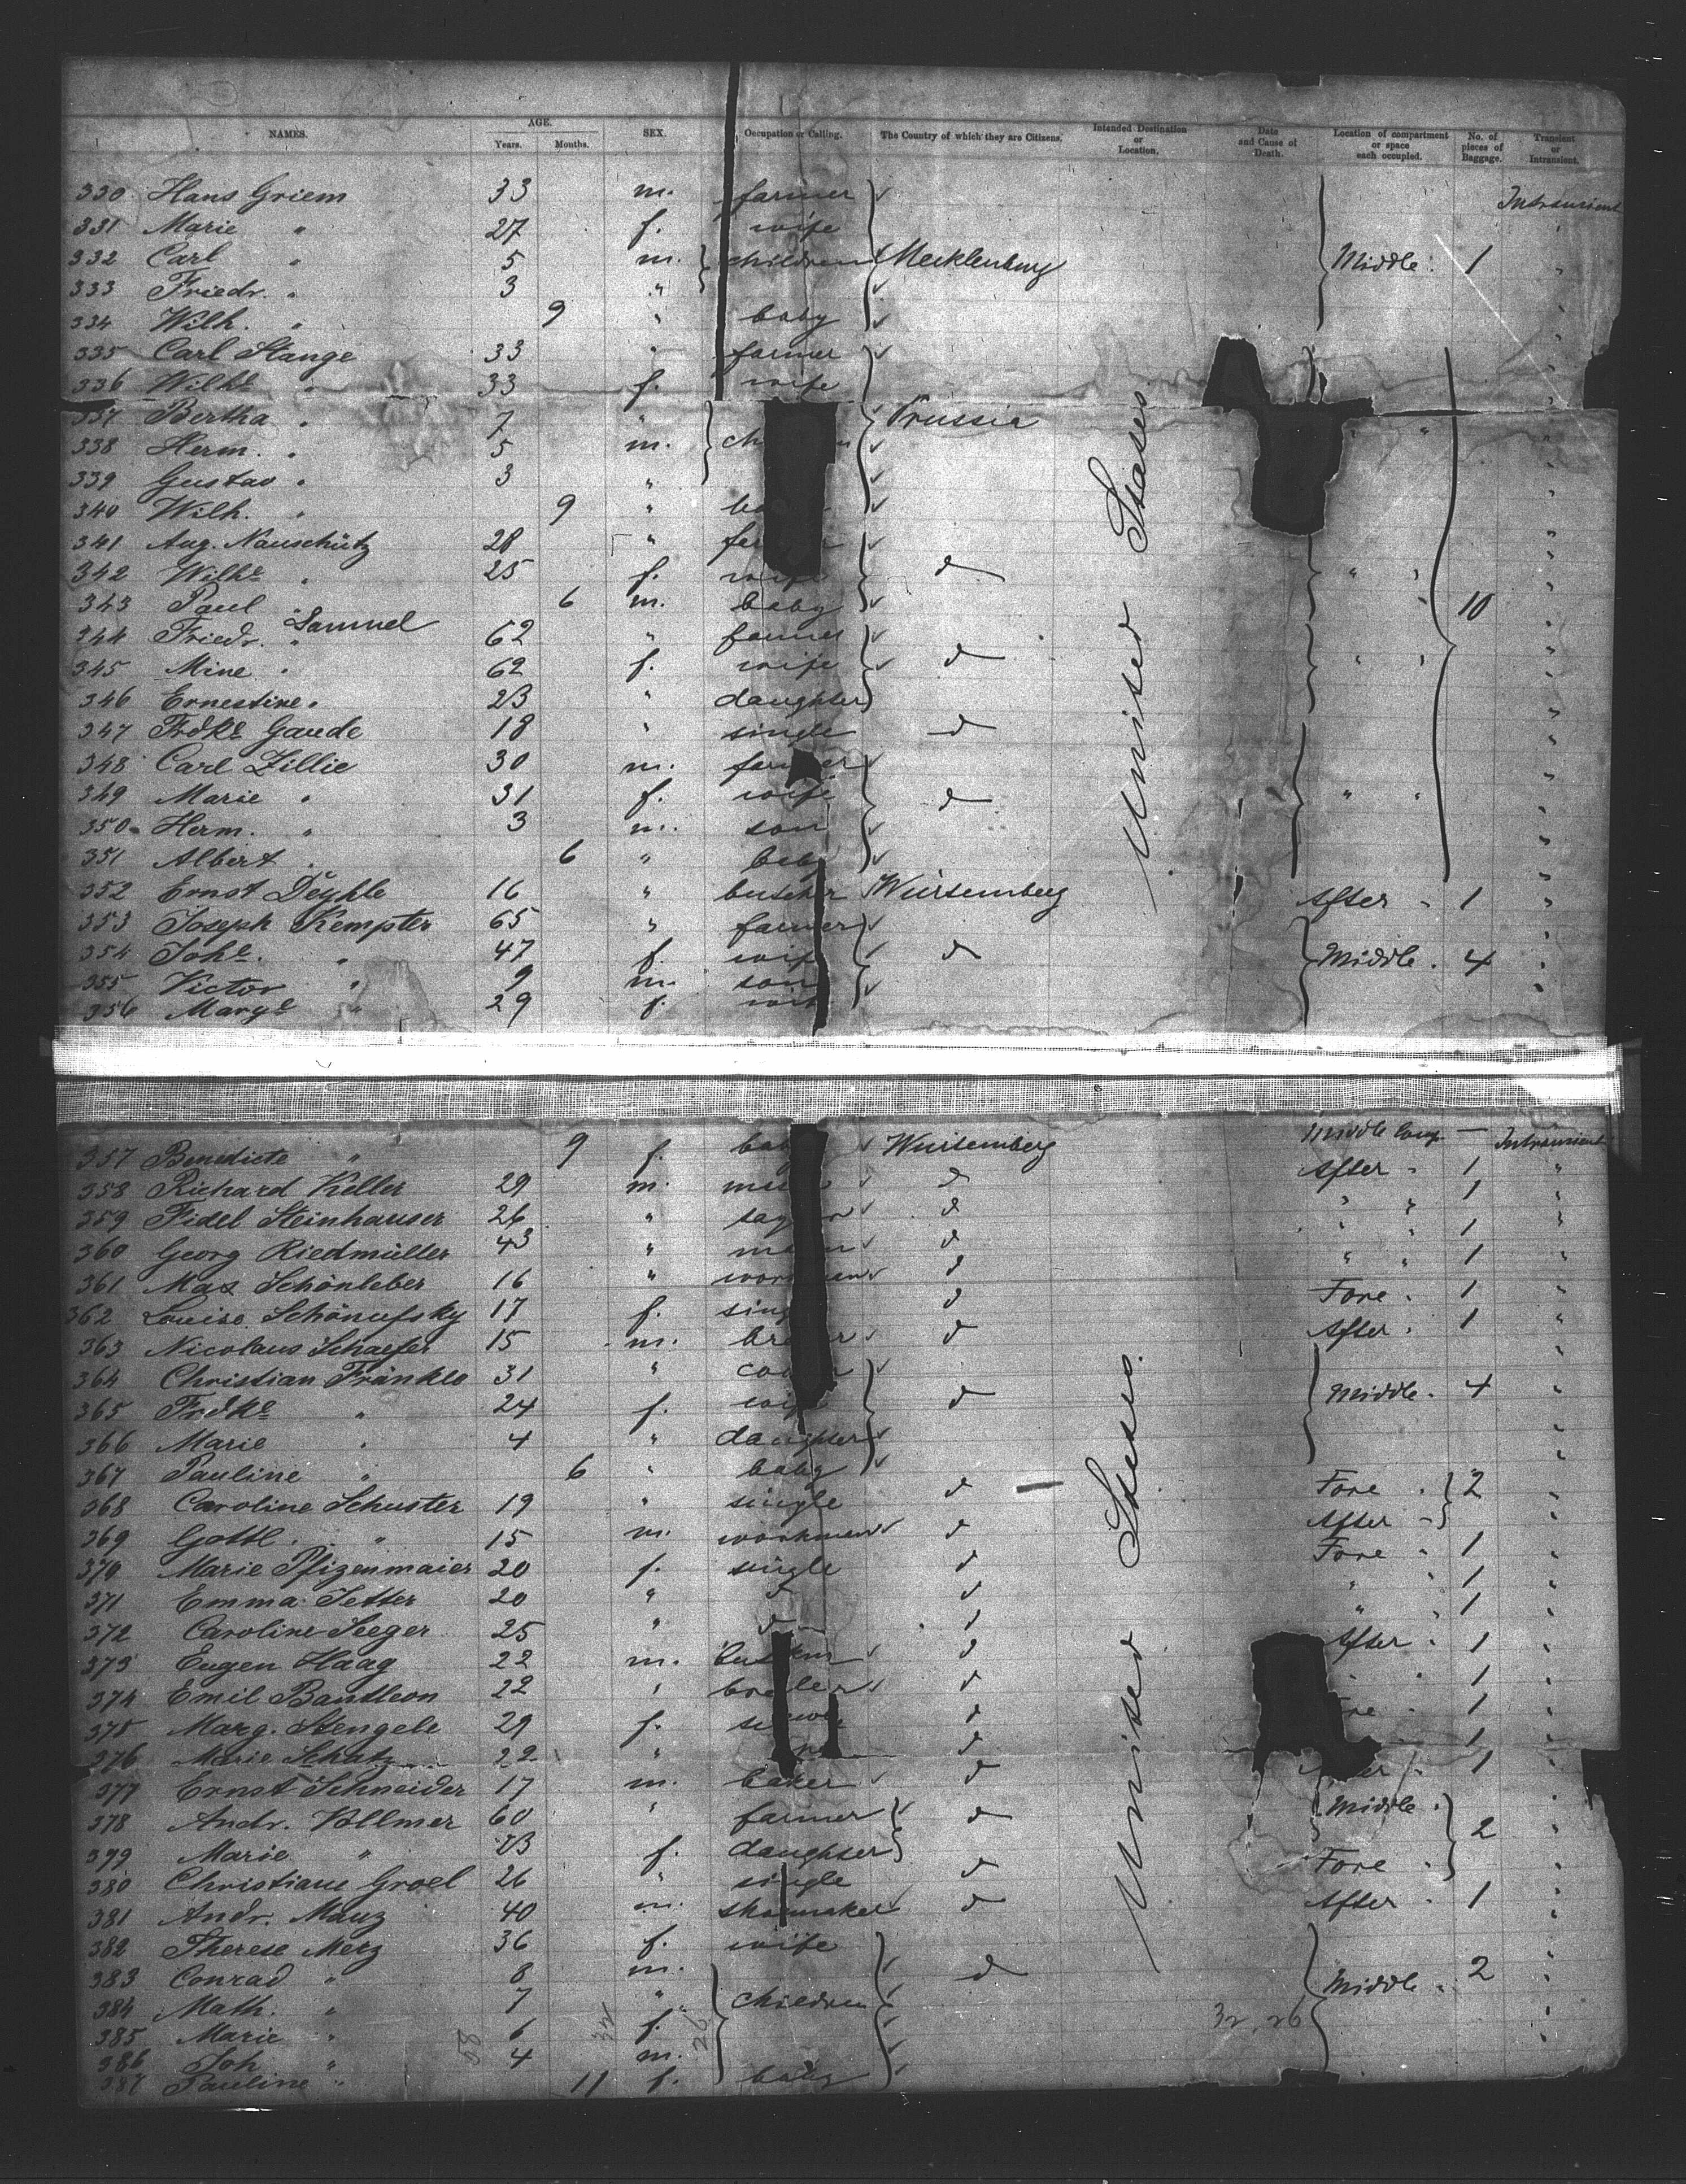 NAMES. AGE. Years. Months. SEX. Occupation or Calling. The Country of which they are Citizens. Intended Destination or Location. Date and Cause of Death. Location of compartment or space each occupied. No. of pieces of Baggage. Transient or Intransient.
330 Hans Griem 33 m. farmer Intransient
331 Marie " 27 f. wife
332 Carl " 5 m. children Mecklenburg Middle. 1 "
333 Friedr. " 3 "
334 Wilh. " 9 " baby
335 Carl Stange 33 " farmer
336 Wilhe " 33 f. wife
337 Bertha " 7 " Prussia
338 Herm. " 5 m. "
339 Gustav " 3 "
340 Wilh. " 9 "
341 Aug. Nauschütz 28 "
342 Wilhe " 25 f. wife d "
343 Paul " 6 m. baby 10
344 Friedr. Samuel 62 " farmer
345 Mine " 62 f. wife d "
346 Ernestine " 23 " daughter
347 Frdke Gaude 18 " single d
348 Carl Zillie 30 m. farmer
349 Marie " 31 f. wife d "
350 Herm. " 3 m. son
351 Albert " 6 " baby
352 Ernst Deyhle 16 " butcher Würtemberg After " 1 "
353 Joseph Kempter 65 " farmer
354 Johe. " 47 f. wife d Middle. 4 "
355 Victor " 9 m. son
356 Marge " 29 f.
United States
357 Benedicte " 9 f. baby Würtemberg Middle Comp. — Intransient
358 Richard Keller 29 m. d After " 1 "
359 Fidel Steinhauser 26 " d " " 1 "
360 Georg Riedmüller 43 " d " " 1 "
361 Max Schönleber 16 " workman d " " 1 "
362 Louise Schönufsky 17 f. single d Fore " 1 "
363 Nicolaus Schaefer 15 m. d After " 1 "
364 Christian Fränkle 31 "
365 Frdke " 24 f. wife d Middle. 4 "
366 Marie " 4 " daughter
367 Pauline " 6 " baby
368 Caroline Schuster 19 " single d Fore " 2
369 Gottl. " 15 m. workman d After "
370 Marie Pfizenmaier 20 f. single d Fore " 1 "
371 Emma Setter 20 " d d " " 1 "
372 Caroline Seeger 25 " d d " " 1 "
373 Eugen Haag 22 m. d After " 1 "
374 Emil Bantleon 22 " d " 1 "
375 Marg. Stengele 29 f. d Fore " 1 "
376 Marie Schatz 22 " d 1
377 Ernst Schneider 17 m. baker d After " 1
378 Andr. Vollmer 60 " farmer d Middle " 2
379 Marie " 23 f. daughter Fore "
380 Christiane Groel 26 " single d
381 Andr. Mauz 40 m. shoemaker d After " 1 "
382 Therese Merz 36 f. wife
383 Conrad " 8 m. d Middle " 2 "
384 Math. " 7 " children
385 Marie " 6 f. 32, 26
386 Joh. " 4 m.
387 Pauline " 11 f. baby
United States
58
32
26